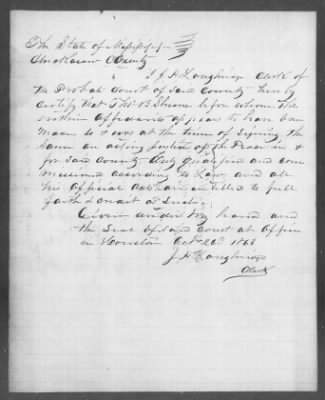 The State of Mississippi
Chickasaw County
I J H Loughridge Clerk of
the Probate Court of said County hereby
certify that Thos B Shearer before whom the
within Affidavit appears to have been
made is & was at the time of signing the
same an acting justice of the Peace in &
for said County duly qualified and com
missioned according to Law and all
his Official Acts are entitled to full
faith & credit
Given under my hand and
the Seal of said Court at Office
in Houston Oct 26 1863
J H Loughridge
Clerk